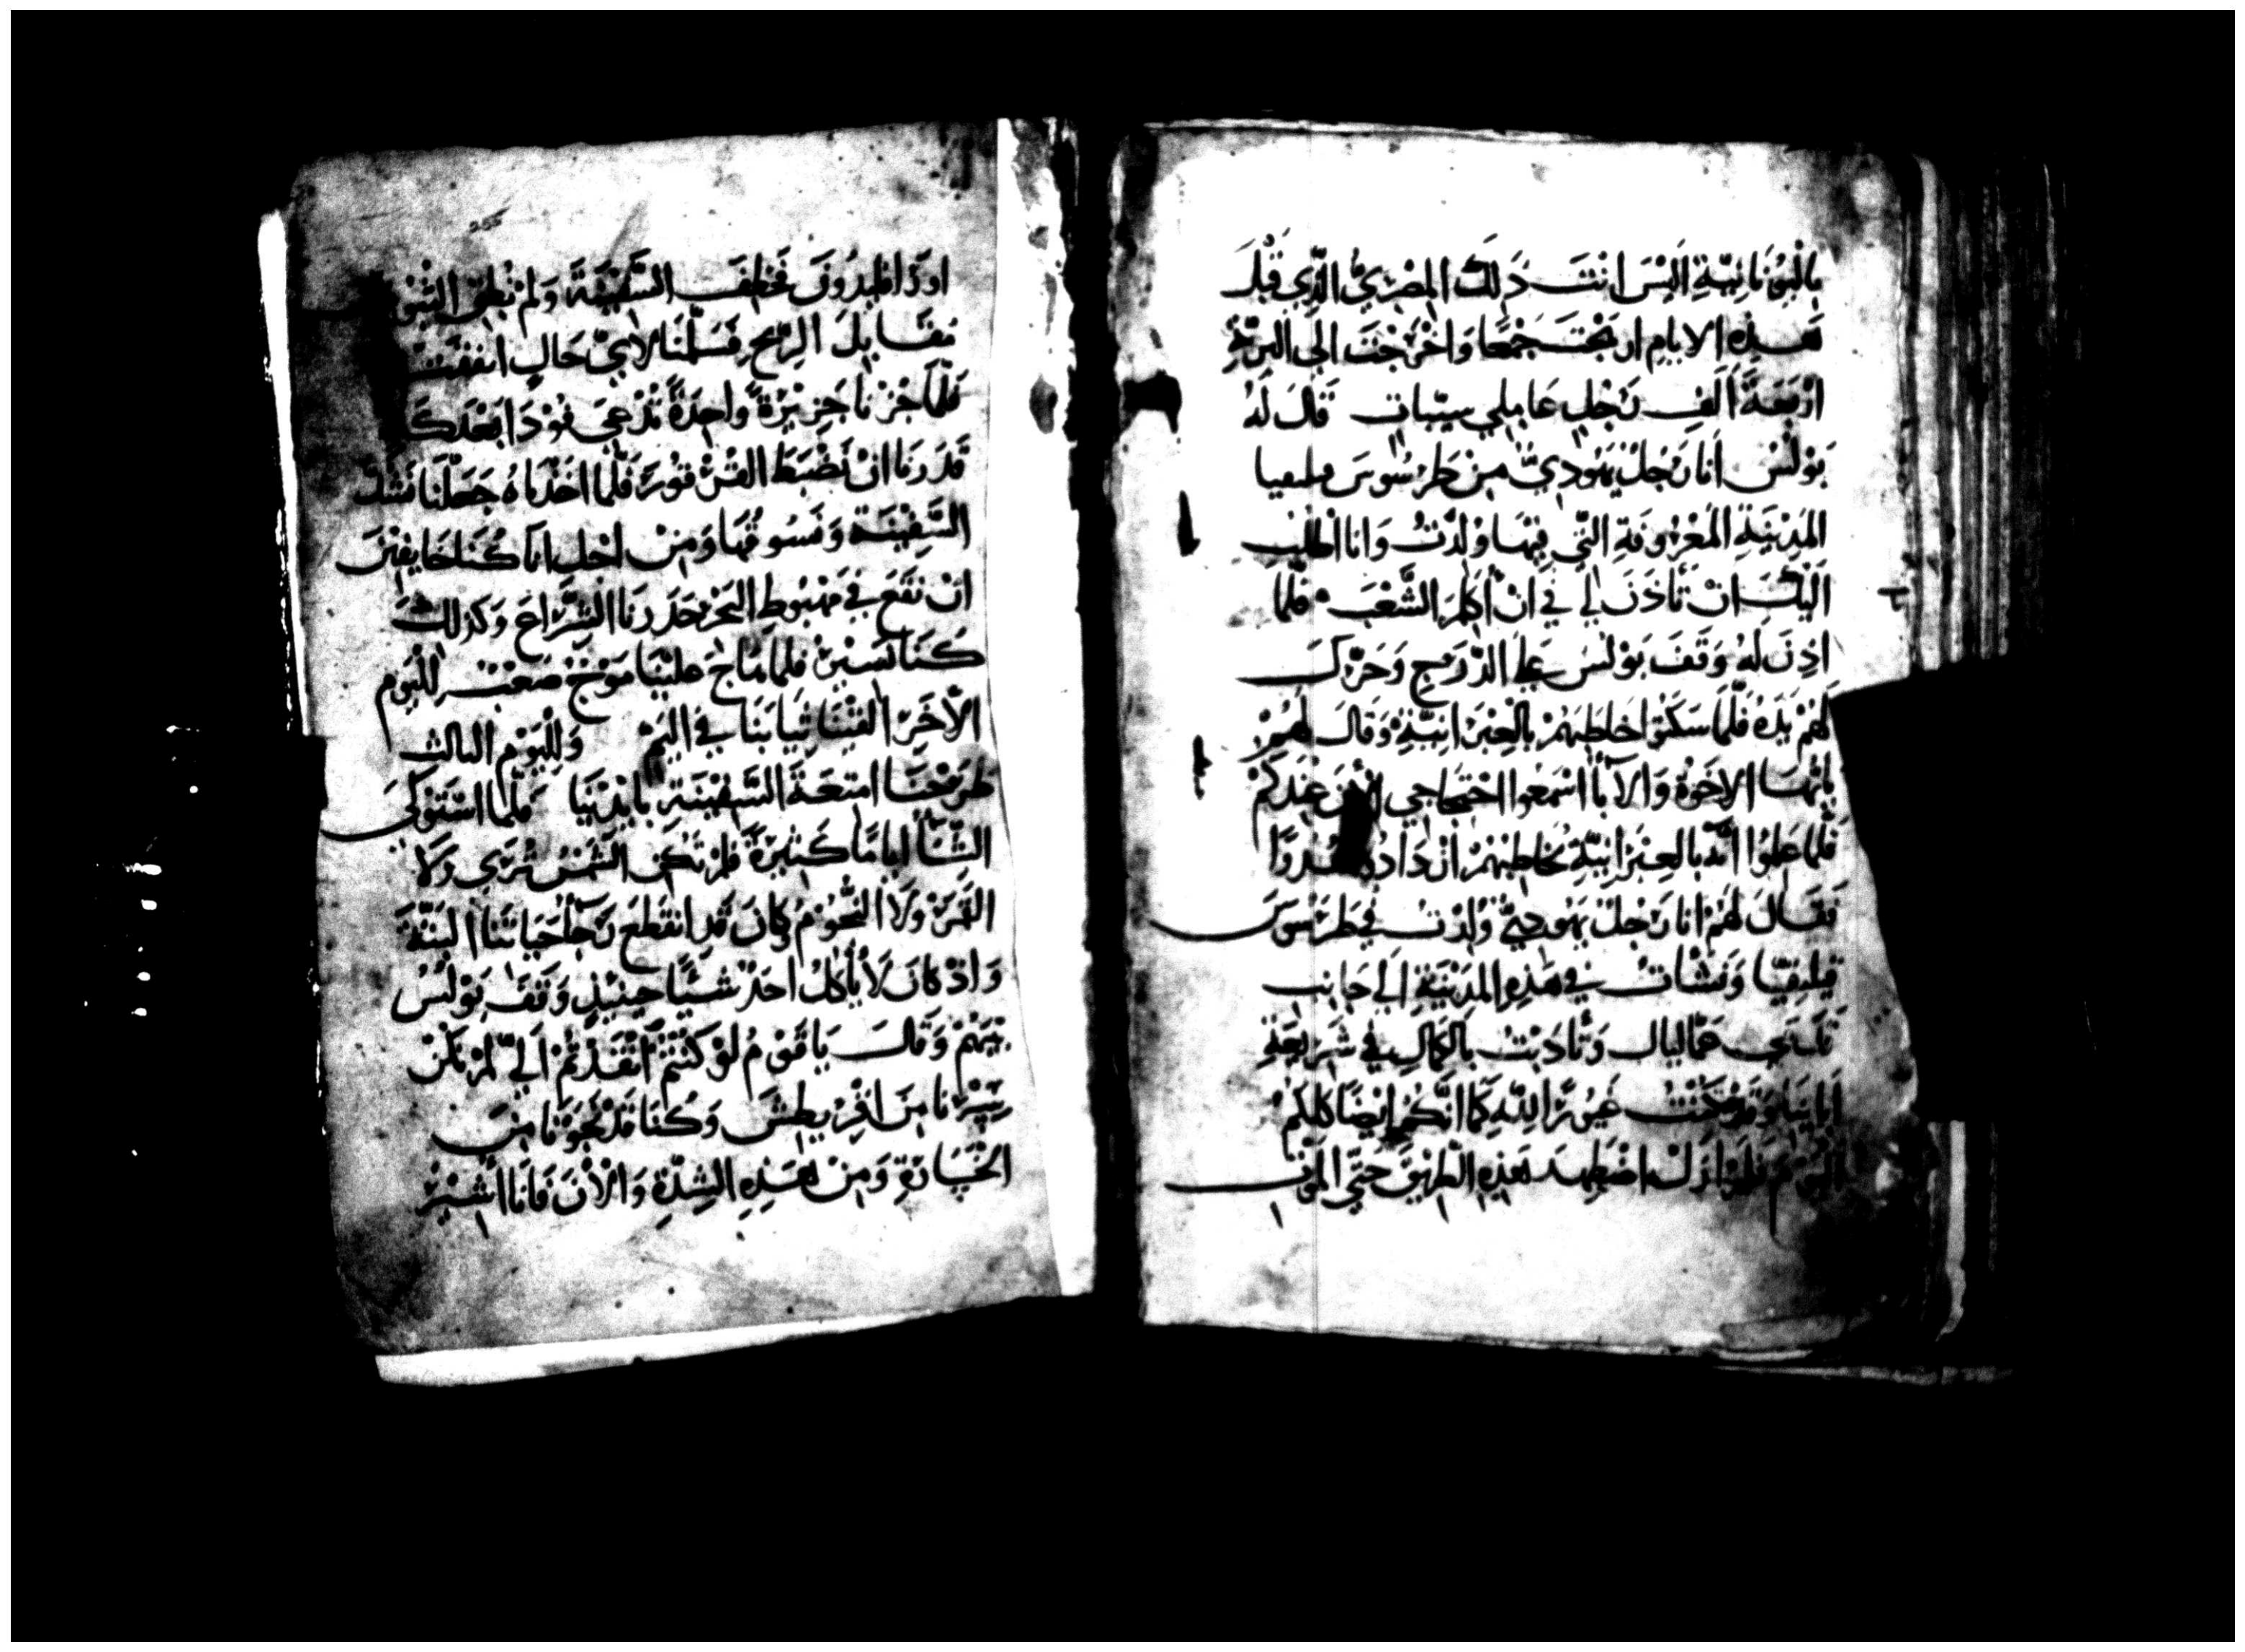 بِالْيُونَانِيَّةِ الَيْسَ انْتَ ذَلِكَ المِصْرِيُّ الَّذِي قَبْلَ
هَذِهِ الايامِ ارتجْتَ جَمْعًا وَاخْرَجْتَ الي البَرِّ
ارْبَعَةَ الَفِ رَجُلٍ عَامِلِي سِيّيات قَال لَهُ
بَوْلُسْ انا رَجُلٌ يَهُودِيٌّ مِن طَرسُوسَ
المَدِيْنَةِ المَعْرُوفَةِ التَّي فِيْهَا وُلِدْتُ وَانا اطْلُب
الَيْكَ انْ تَأذَنَ لِي فِي انْ أكَلِّمَ الشَّعْبَ فلمَّا
اذِنَ لهُ وَقَفَ بَوْلُسُ عَلي الدَّرَجِ وَحَرَّكَ
لَهُمْ يَدَهُ فَلَمَّا سَكتوا خَاطَبَهُمْ بِالْعِبْرَانِيَّةِ وَقَالَ لَهُمْ
يا ايُّهَا الاِخْوَةُ وَالابَاَ اسْمَعُوا احْتِجَاجِي الأنَ عِنْدَكُمْ
فَلَمَّا عَلِمُوْا انَّه بِالعِبْرَانِيَّةِ يُخَاطِبُهُمْ ازْدَادُوا هُدُوًا
فَقَالَ لَهُمْ انا رَجُلٌ يَهُودِيٌّ وُلِدْتُ فِي طَرَسُوسَ
قيلِيقيّا وَنَشَأتُ فِي هَذِهِ المَدِيْنَةِ الَي جَانِبِ
قَدَمَي غمَاليال وَتَأدَبْتُ بِالكَمَالِ فِي شَرِيْعَةِ
ابَائِنا وَقَدْ كُنْتُ غَيُوْرًا لِلّهِ كَمَا انَّكُم ايْضًا كُلكُمْ
اليَوْمَ فلمْ ازَلْ اضْطَهِد هَذِهِ الطَّرِيْقَ حَتَّي المَوْت
255
اورَاقليدُونَ فخَطِفَت السَّفِيْنَةَ وَلمْ تُطِق الثبُوت
مُقَابِلَ الرِّيْحِ فَسَلَّمْنَا لايّ حَالٍ اتفَقَتْ
فَلَمَّا جُزْنا جَزِيْرَةً وَاحِدَةً تُدْعَي قودَا بَعْدَ كَد
قَدَرنَا انْ نَضْبطَ القرْقُورَ فَلَمَّا اخَذْنَاهُ جَعَلْنَا نَشُدّ
السَّفِيْنَة وَنَسُوقُهَا وَمِنْ اجْلِ انا كُنَا خَايفِيْنَ
انْ نَقَعَ فِي مَهْبُوطِ البَحْرِ حَدَرنَا الشِرَاعَ وَكَذلِكَ
كُنَا نَسِيْرُ فلمَا هَاجَ عَليْنَا مَوْجٌ صَعْبٌ لِلْيَوم
الأخَرِ القَيْنَا ثيابَنَا فِي اليَمِّ وَلِلْيَوْمِ الثالث
طَرَحْنَا امتِعَةَ السَّفِيْنَةِ بِايْدِيْنَا فَلَمَّا اسْتَوْلَي
الشِّتَأُ ايامًا كَثِيْرَةً فلمْ تَكُن الشَّمْسُ تُرَي وَلا
القَمَرُ وَلا النُّجُوْمُ وكَانَ قَدِ انقَطَعَ رَجَأُ حَيَاتَنَا البَتَّةَ
وَاذ كَانَ لا يأكُلُ احَدٌ شَيًّا حِينَيذٍ وَقَفَ بَوْلُسُ
بَيْنَهُمْ وَقَالَ يَا قَوْمُ لوْ كُنْتُمْ انْقَدْتُمْ الَيَّ لمْ نَكُنْ
سِرْنا مِنَ اقْرِيطِشَ وَكُنَا قَدْ نَجَوْنَا مِنَ
الخَسَارَةِ وَمِنْ هَذِهِ الشِدَّةِ وَالأنَ فَانَا اشِيْرُ